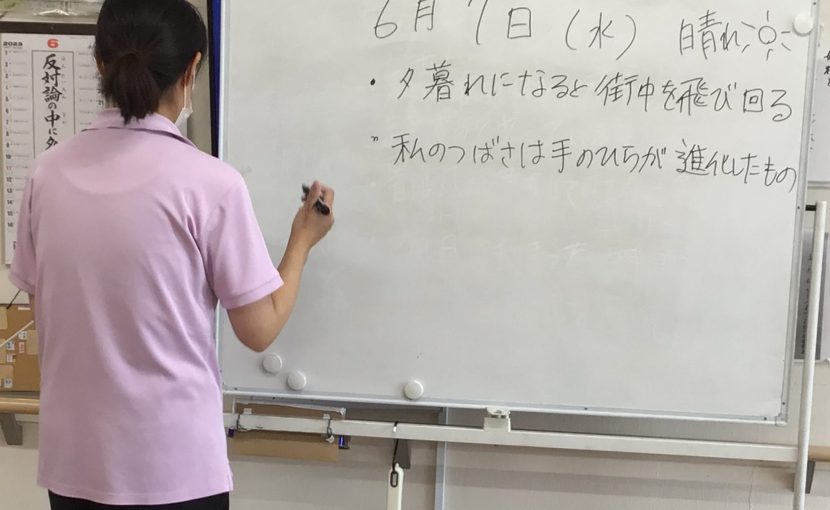 6月7日(水) 晴れ
・夕暮れになると街中を飛び回る
〃私のつばさは手のひらが進化したもの
2023 6
反対論の中に